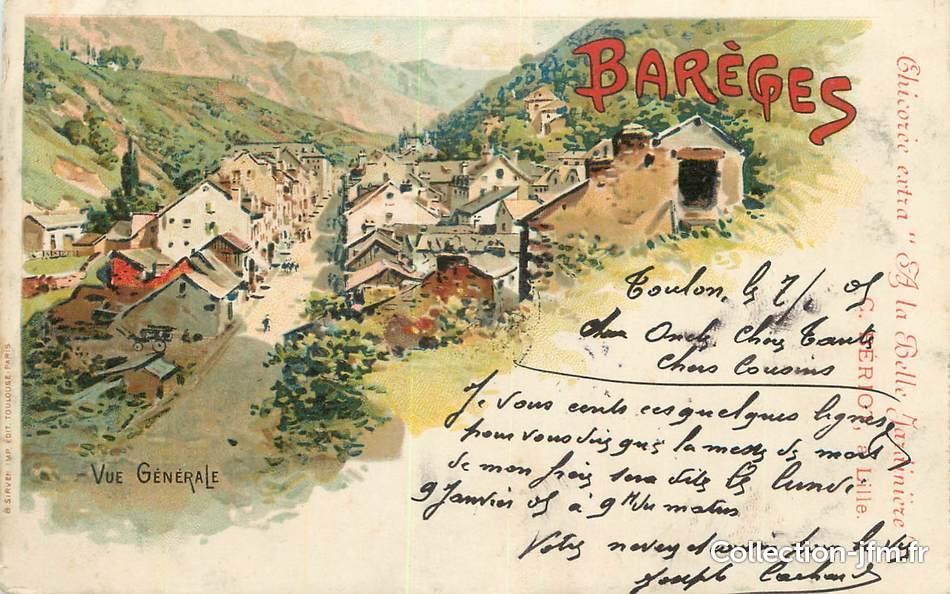 BARÈGES
Chicorée extra "A la Belle Jardinière"
C. BÉRIOT à Lille.
Toulon, le 7/1 05
Cher Oncle Chère Tante
Chers Cousins
Je vous écris ces quelques lignes
pour vous dire que la messe de mort
de mon frère sera dite le lundi
9 Janvier 05 à 9 h du matin
Votre neveu
Joseph
VUE GÉNÉRALE
B. SIRVEN IMP. ÉDIT. TOULOUSE-PARIS
Collection-jfm.fr